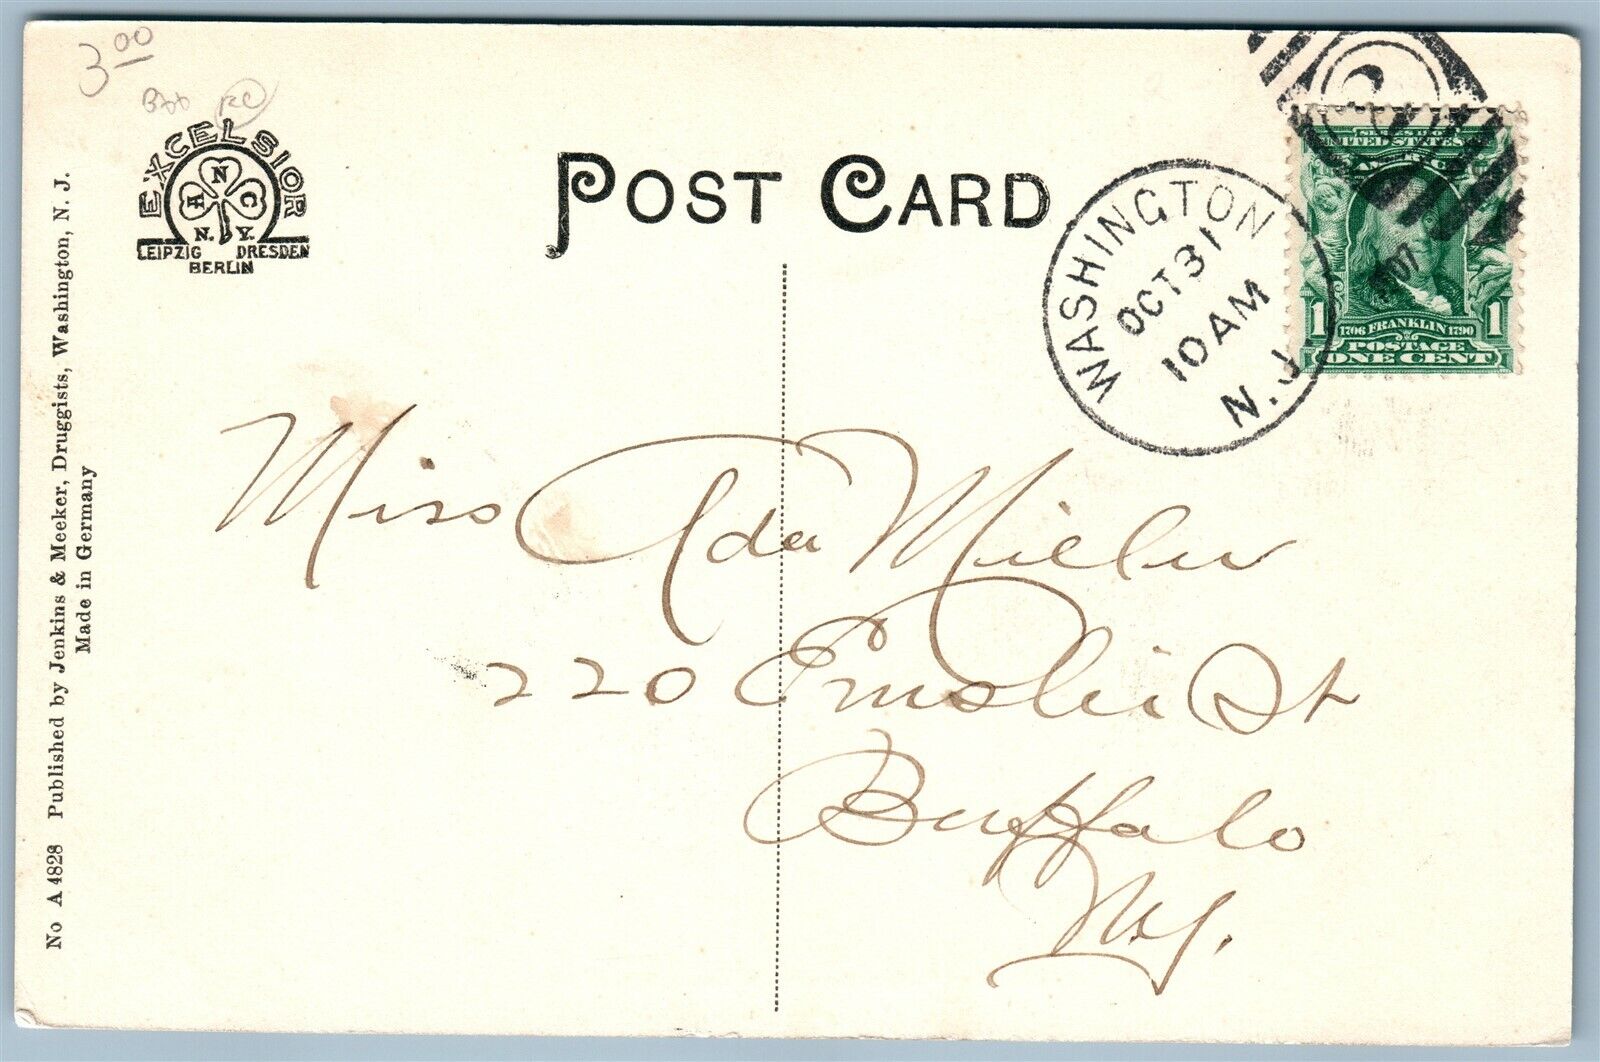 3.00
EXCELSIOR
A N C
N. Y.
LEIPZIG DRESDEN
BERLIN
POST CARD
WASHINGTON
OCT 31
10 AM
N.J.
1907
2
SERIES 1902
UNITED STATES
1 1
1706 FRANKLIN 1790
POSTAGE
ONE CENT
Miss Ada Miller
220 Emslie St
Buffalo
N.Y.
No A 4828 Published by Jenkins & Meeker, Druggists, Washington, N. J.
Made in Germany